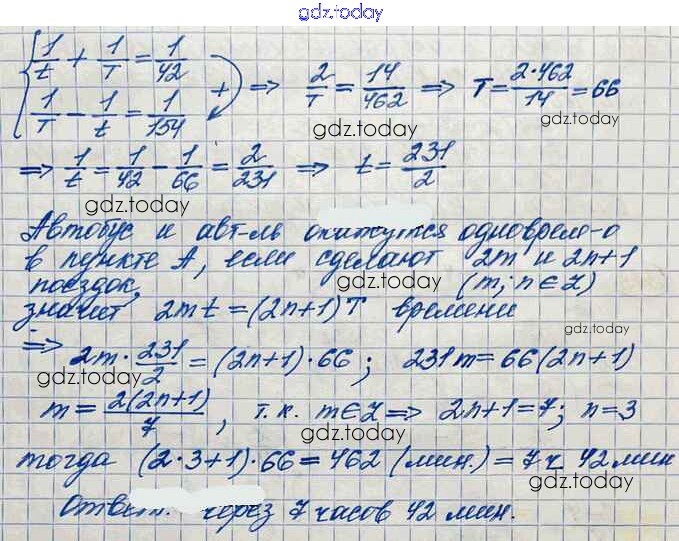 gdz.today
{ 1/t + 1/T = 1/42
1/T − 1/t = 1/154 + ⇒ 2/T = 14/462 ⇒ T = 2·462/14 = 66
gdz.today
gdz.today
⇒ 1/t = 1/42 − 1/66 = 2/231 ⇒ t = 231/2
gdz.today
Автобус и авт-ль окажутся одноврем-о
в пункте А, если сделают 2m и 2n+1
gdz.today
поездок, (m; n ∈ Z)
значит 2mt = (2n+1)T времени
gdz.today
⇒ 2m · 231/2 = (2n+1)·66; 231m = 66(2n+1)
gdz.today
m = 2(2n+1)/7, т.к. m∈Z ⇒ 2n+1=7; n=3
gdz.today
тогда (2·3+1)·66 = 462 (мин.) = 7ч 42мин
gdz.today
Ответ: через 7 часов 42 мин.